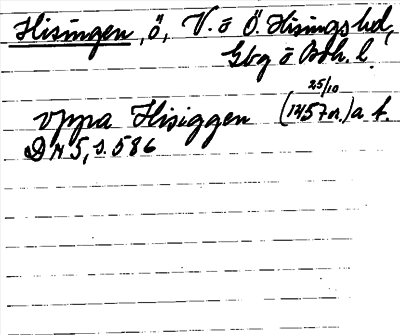 Hisingen, ö, V. o Ö. Hisings hd,
Gbg o Boh. l.
25/10
vppa Hisiggen (1457 n.) a f.
DN 5, s. 586